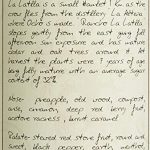 La Latilla is a small hamlet 1 km as the
crow flies from the distillery. La Atteva
Oeste is made. Rancho La Latilla
slopes gently from the east giving full
afternoon sun exposure and has mature
cedar and oak trees around it. At
harvest the plants were 7 years of age
very fully mature with an average sugar
content of 32%
Nose - pineapple, old wood, compost,
ash, cinnamon, deep red berry fruit,
acetone, burnt caramel
Palate - stewed red stone fruit, round and
sweet, black pepper, earth, wetted